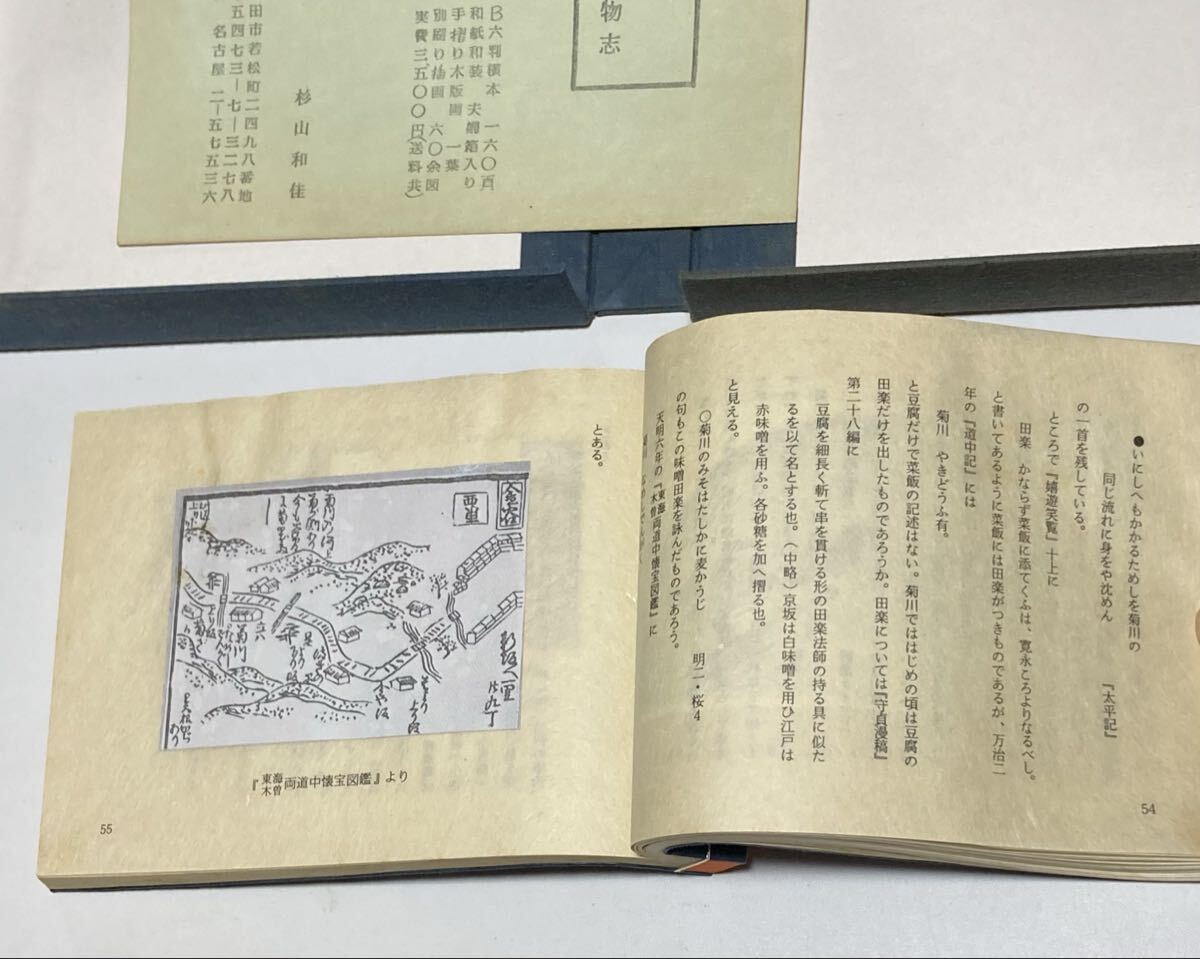 物志
B六判横本 一六〇頁
和紙和装 夫婦箱入り
手摺り木版画 一葉
別刷り揷画 六〇余図
実費三、五〇〇円(送料共)
杉山和佳
田市若松町二四九八番地
五四七三―七―三二七八
名古屋 二―五七五三六
●いにしへもかかるためしを菊川の
同じ流れに身をや沈めん 『太平記』
の一首を残している。
ところで『嬉遊笑覧』十上に
田楽 かならず菜飯に添てくふは、寛永ころよりなるべし。
と書いてあるように菜飯には田楽がつきものであるが、万治二
年の『道中記』には
菊川 やきどうふ有。
と豆腐だけで菜飯の記述はない。菊川でははじめの頃は豆腐の
田楽だけを出したものであろうか。田楽については『守貞漫稿』
第二十八編に
豆腐を細長く斬て串を貫ける形の田楽法師の持る具に似た
るを以て名とする也。(中略)京坂は白味噌を用ひ江戸は
赤味噌を用ふ。各砂糖を加へ摺る也。
と見える。
〇菊川のみそはたしかに麦かうじ 明二・桜4
の句もこの味噌田楽を詠んだものであろう。
天明六年の『東海木曽両道中懐宝図鑑』に
54
とある。
『東海木曽両道中懐宝図鑑』より
55